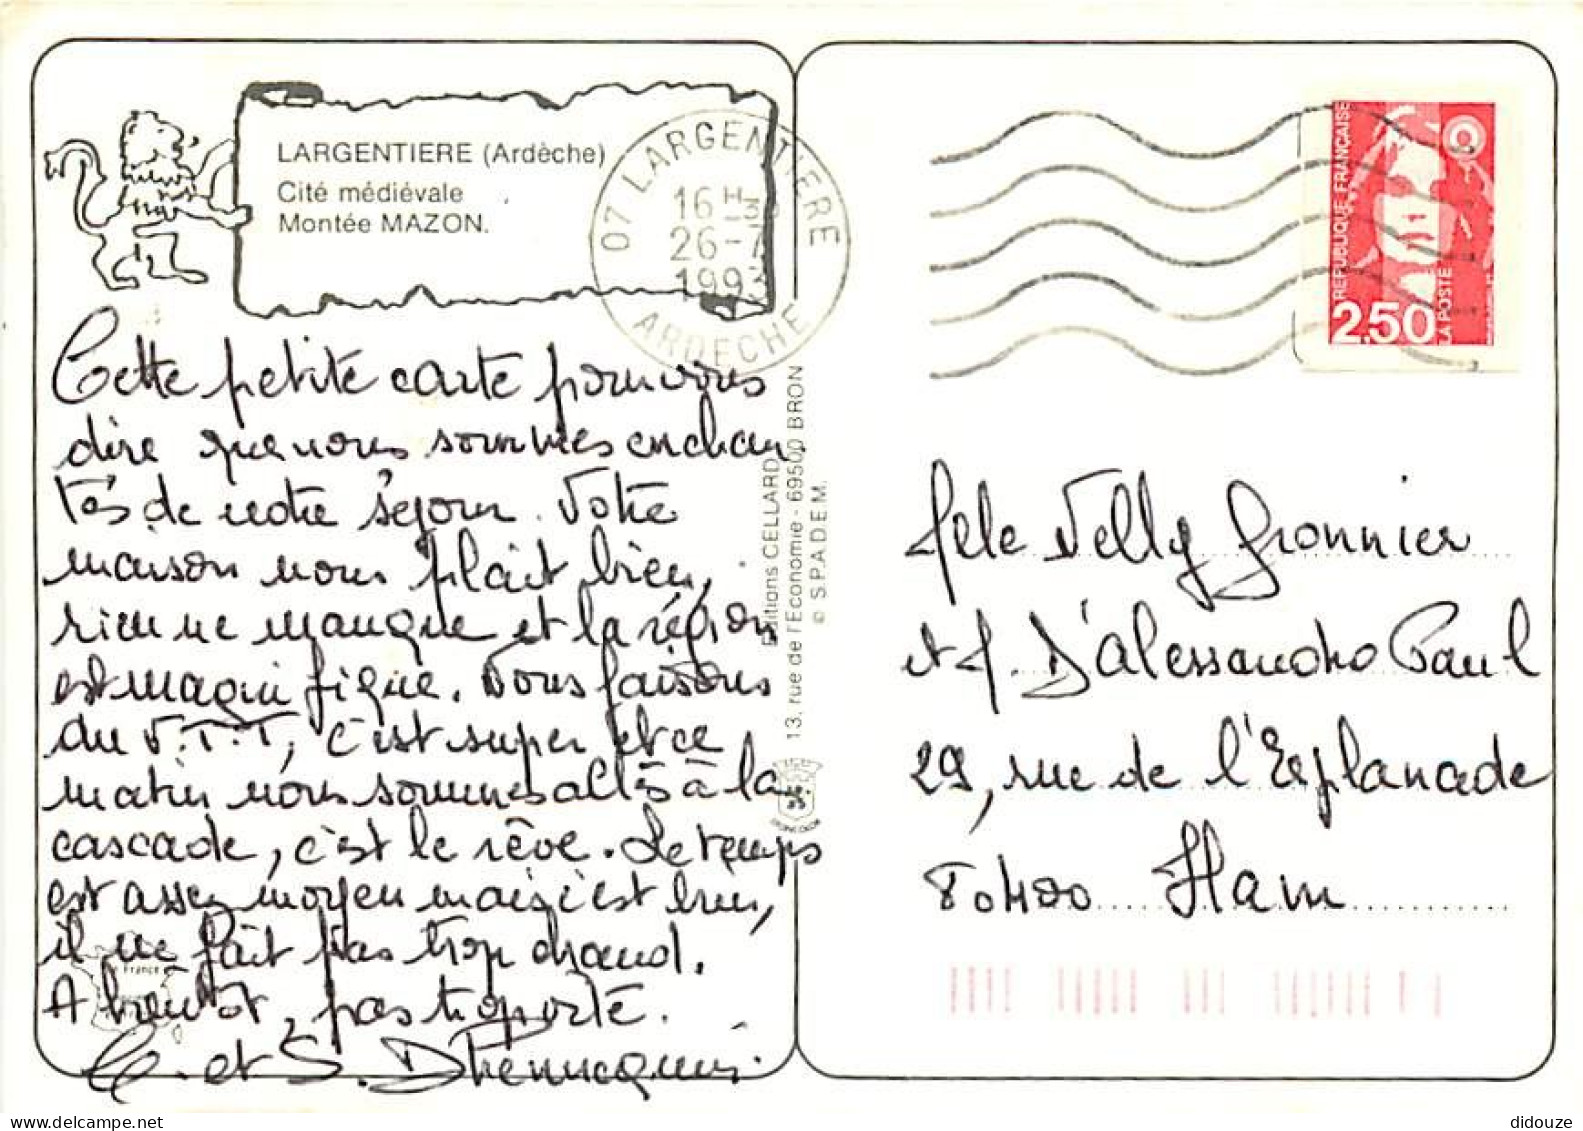 LARGENTIERE (Ardèche)
Cité médiévale
Montée MAZON.
07 LARGENTIERE
16 H
26-7
1993
ARDECHE
REPUBLIQUE FRANÇAISE
2,50
LA POSTE
Cette petite carte pour vous
dire que nous sommes enchan
tés de notre séjour. Votre
maison nous plait bien,
rien ne manque et la région
est magnifique. Nous faisons
du V.T.T, c'est super et ce
matin nous sommes allés à la
cascade, c'est le rêve. Le temps
est assez moyen mais c'est bien,
il ne fait pas trop chaud.
A bientôt, pas trop
C. et S.
Editions CELLARD
13, rue de l'Economie - 69500 BRON
© S.P.A.D.E.M.
France
Melle Nelly
et M. D'Alessandro Paul
29, rue de l'Esplanade
80400 Ham
didouze